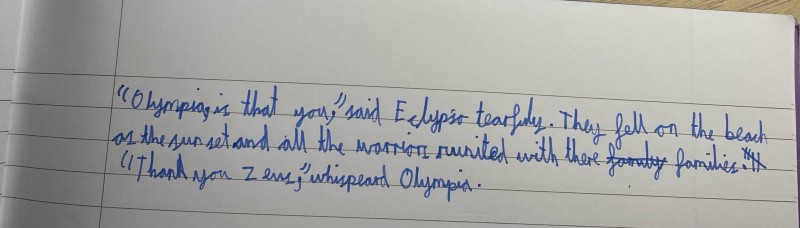 “Olympia, is that you,” said Eclypso tearfuly. They fell on the beach
as the sun set and all the warriors reunited with there ~~family~~ families.
“Thank you Zeus,” whispeard Olympia.